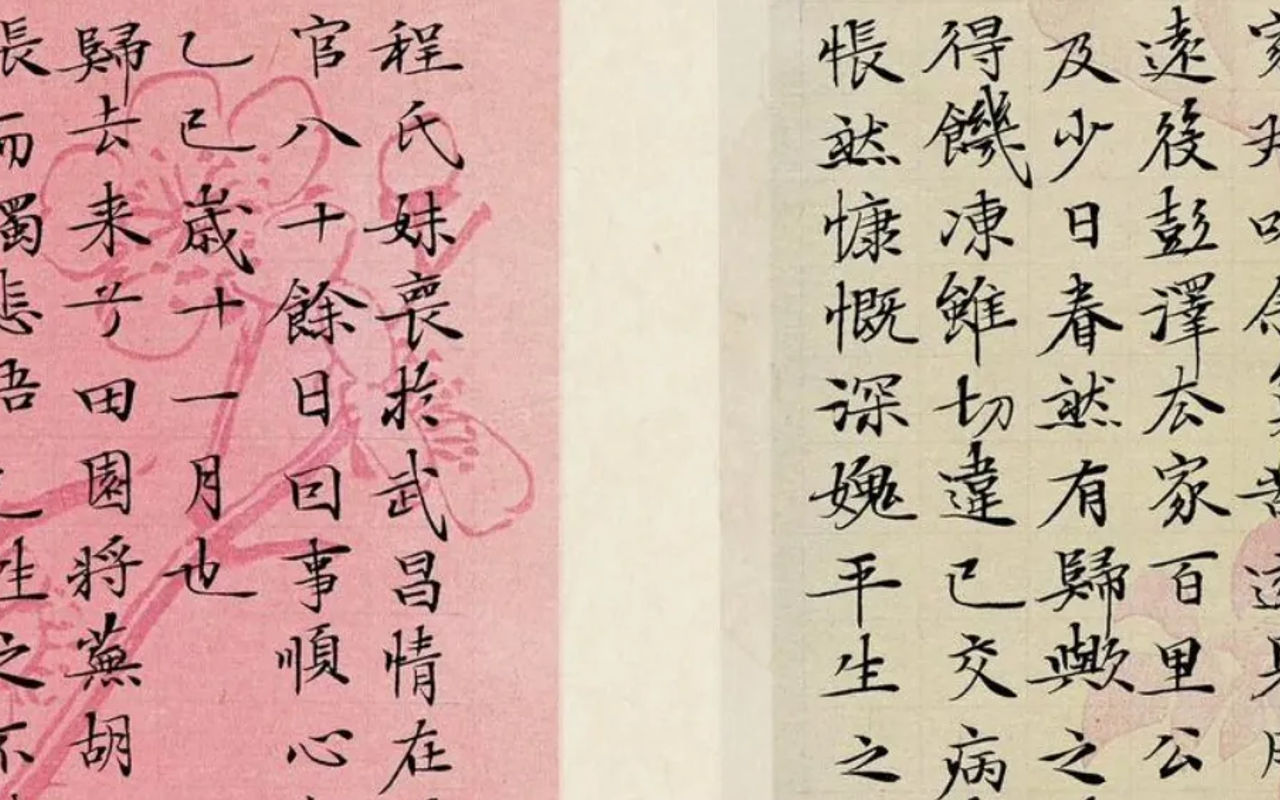 遠役彭澤去家百里公
及少日眷然有歸歟之
得饑凍雖切違己交病
悵然慷慨深媿平生之
程氏妹喪於武昌情在
官八十餘日囙事順心
乙巳歲十一月也
歸去来兮田園將蕪胡
悵而獨悲悟已往之不